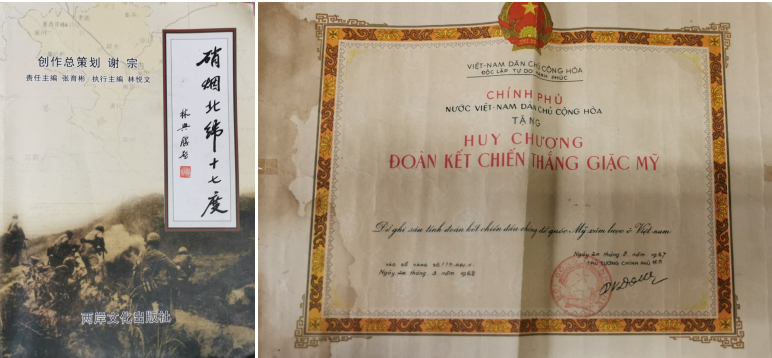 创作总策划 谢 宗
责任主编 张育彬 执行主编 林悦文
硝烟北纬十七度
两岸文化出版社
VIỆT-NAM DÂN CHỦ CỘNG HÒA
ĐỘC LẬP TỰ DO HẠNH PHÚC
CHÍNH PHỦ
NƯỚC VIỆT-NAM DÂN CHỦ CỘNG HÒA
TẶNG
HUY CHƯƠNG
ĐOÀN KẾT CHIẾN THẮNG GIẶC MỸ
Để ghi sâu tình đoàn kết chiến đấu chống đế quốc Mỹ xâm lược ở Việt-nam
Ngày 2m tháng 2. năm 1967
THỦ TƯỚNG CHÍNH PHỦ
VÀO SỔ VÀNG SỐ
năm 1968